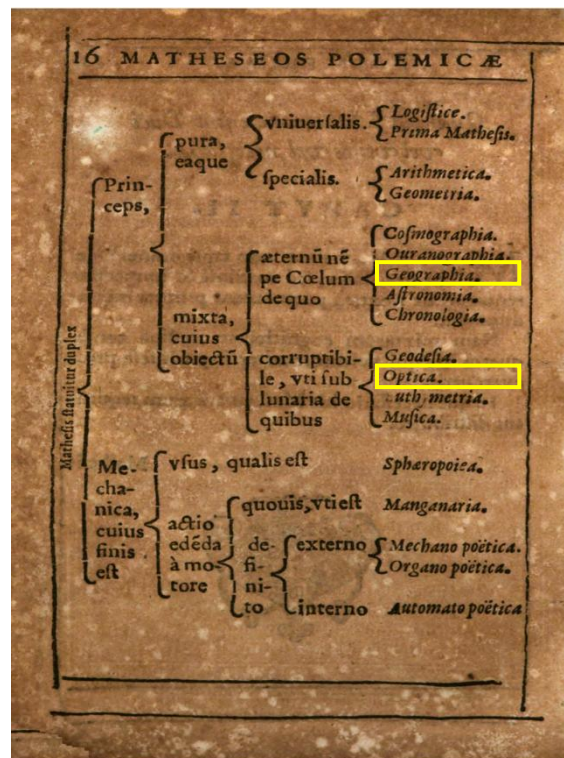 16 MATHESEOS POLEMICÆ
Matheſis ſtatuitur duplex
Prin-
ceps,
pura,
eaque
vniuerſalis.
Logiſtice.
Prima Matheſis.
ſpecialis.
Arithmetica.
Geometria.
mixta,
cuius
obiectũ
æternũ nẽ
pe Cœlum
de quo
Coſmographia.
Ouranographia.
Geographia.
Aſtronomia.
Chronologia.
corruptibi-
le, vti ſub
lunaria de
quibus
Geodeſia.
Optica.
metria.
Muſica.
Me-
cha-
nica,
cuius
finis
eſt
vſus, qualis eſt
Sphæropoiea.
actio
edẽda
à mo-
tore
quouis, vti eſt
Manganaria.
de-
fi-
ni-
to
externo
Mechano poëtica.
Organo poëtica.
interno
Automato poëtica